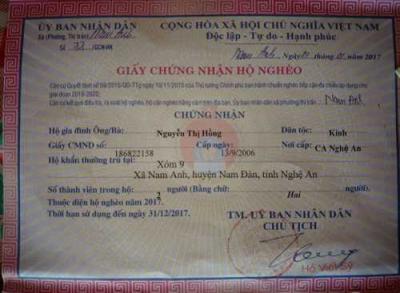 ỦY BAN NHÂN DÂN
Xã (Phường, Thị trấn) Nam Anh
CỘNG HÒA XÃ HỘI CHỦ NGHĨA VIỆT NAM
Độc lập - Tự do - Hạnh phúc
Nam Anh, ngày 01 tháng 01 năm 2017
GIẤY CHỨNG NHẬN HỘ NGHÈO
Căn cứ Quyết định số 59/2015/QĐ-TTg ngày 19/11/2015 của Thủ tướng Chính phủ ban hành chuẩn nghèo tiếp cận đa chiều áp dụng cho
giai đoạn 2016-2020;
Căn cứ kết quả điều tra, rà soát hộ nghèo, hộ cận nghèo hàng năm trên địa bàn, Ủy ban nhân dân xã/phường/thị trấn: Nam Anh
CHỨNG NHẬN
Hộ gia đình Ông/Bà: Nguyễn Thị Hồng Dân tộc: Kinh
Giấy CMND số: 186822158 Cấp ngày: 13/9/2006 Nơi cấp: CA Nghệ An
Hộ khẩu thường trú tại: Xóm 9
Xã Nam Anh, huyện Nam Đàn, tỉnh Nghệ An
Số thành viên trong hộ: 2 người (Bằng chữ: Hai người)
Thuộc diện hộ nghèo năm 2017.
Thời hạn sử dụng đến ngày 31/12/2017.
TM. UỶ BAN NHÂN DÂN
CHỦ TỊCH